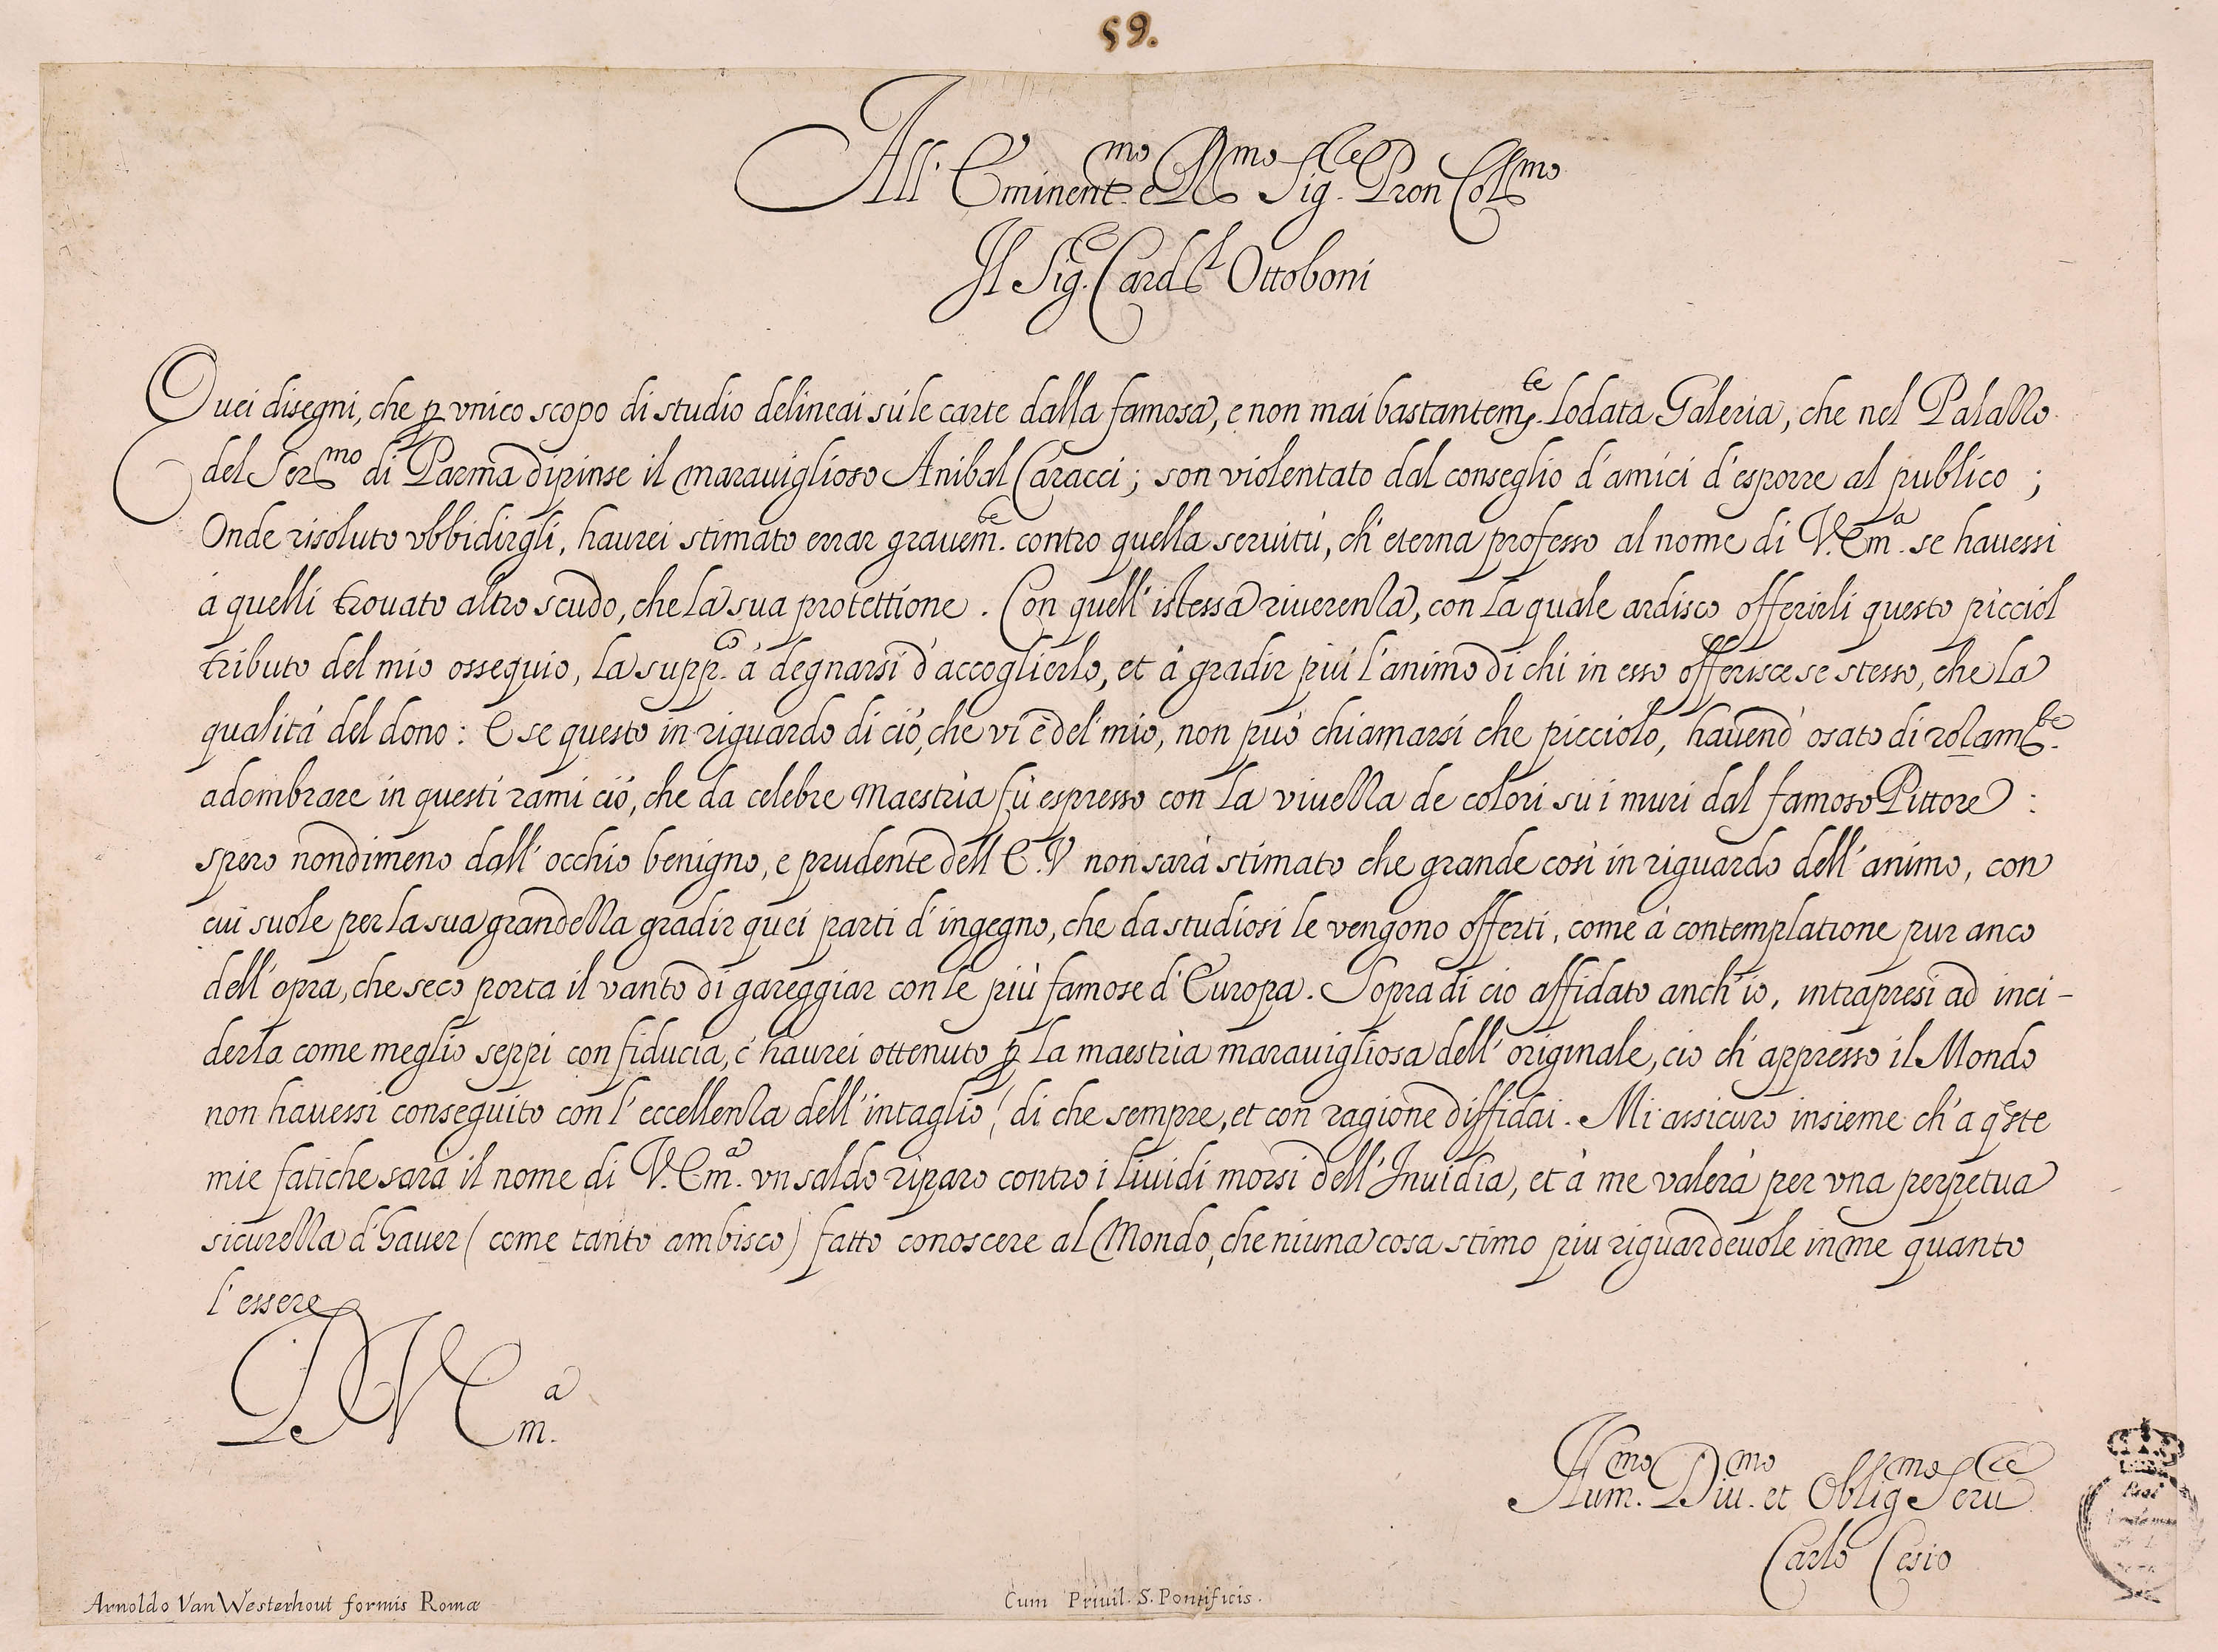 59.
All' Eminent.mo e R.mo Sig.re Pron Col.mo
Il Sig.r Card.l Ottoboni
Quei disegni, che p vnico scopo di studio delineai sú le carte dalla famosa, e non mai bastantem.te lodata Galeria, che nel Palazzo
del Ser.mo di Parma dipinse il marauiglioso Anibal Caracci; son violentato dal conseglio d'amici d'esporre al publico ;
Onde risoluto vbbidirgli, haurei stimato errar grauem.te contro quella seruitù, ch'eterna professo al nome di V. Em.a se hauessi
á quelli trouato altro scudo, che la sua protettione. Con quell'istessa riuerenza, con la quale ardisco offerirli questo picciol
tributo del mio ossequio, la supp.co á degnarsi d'accoglierlo, et á gradir piú l'animo di chi in esso offerisce se stesso, che la
qualitá del dono: E se questo in riguardo di ció, che vi è del mio, non puó chiamarsi che picciolo, hauend' osato di rozam.te
adombrare in questi rami ció, che da celebre maestria fù espresso con la viuezza de colori sú i muri dal famoso Pittore :
spero nondimeno dall'occhio benigno, e prudente dell E.V non sará stimato che grande cosi in riguardo dell'animo, con
cui suole per la sua grandezza gradir quei parti d'ingegno, che da studiosi le vengono offerti, come á contemplatione pur anco
dell'opra, che seco porta il vanto di gareggiar con le più famose d'Europa. Sopra di cio affidato anch'io, intrapresi ad inci-
derla come meglio seppi con fiducia, c'haurei ottenuto p la maestria marauigliosa dell'originale, cio ch'appresso il Mondo
non hauessi conseguito con l'eccellenza dell'intaglio, di che sempre, et con ragione diffidai. Mi assicuro insieme ch'a q'ste
mie fatiche sará il nome di V. Em.a vn saldo riparo contro i liuidi morsi dell'Inuidia, et à me valerà per vna perpetua
sicurezza d'hauer (come tanto ambisco) fatto conoscere al Mondo, che niuna cosa stimo piu riguardeuole in me quanto
l'essere
D V E m.a
Hum.mo Diu.mo et Oblig.mo Seru.re
Carlo Cesio
Arnoldo Van Westerhout formis Romæ
Cum Priuil. S. Pontificis.